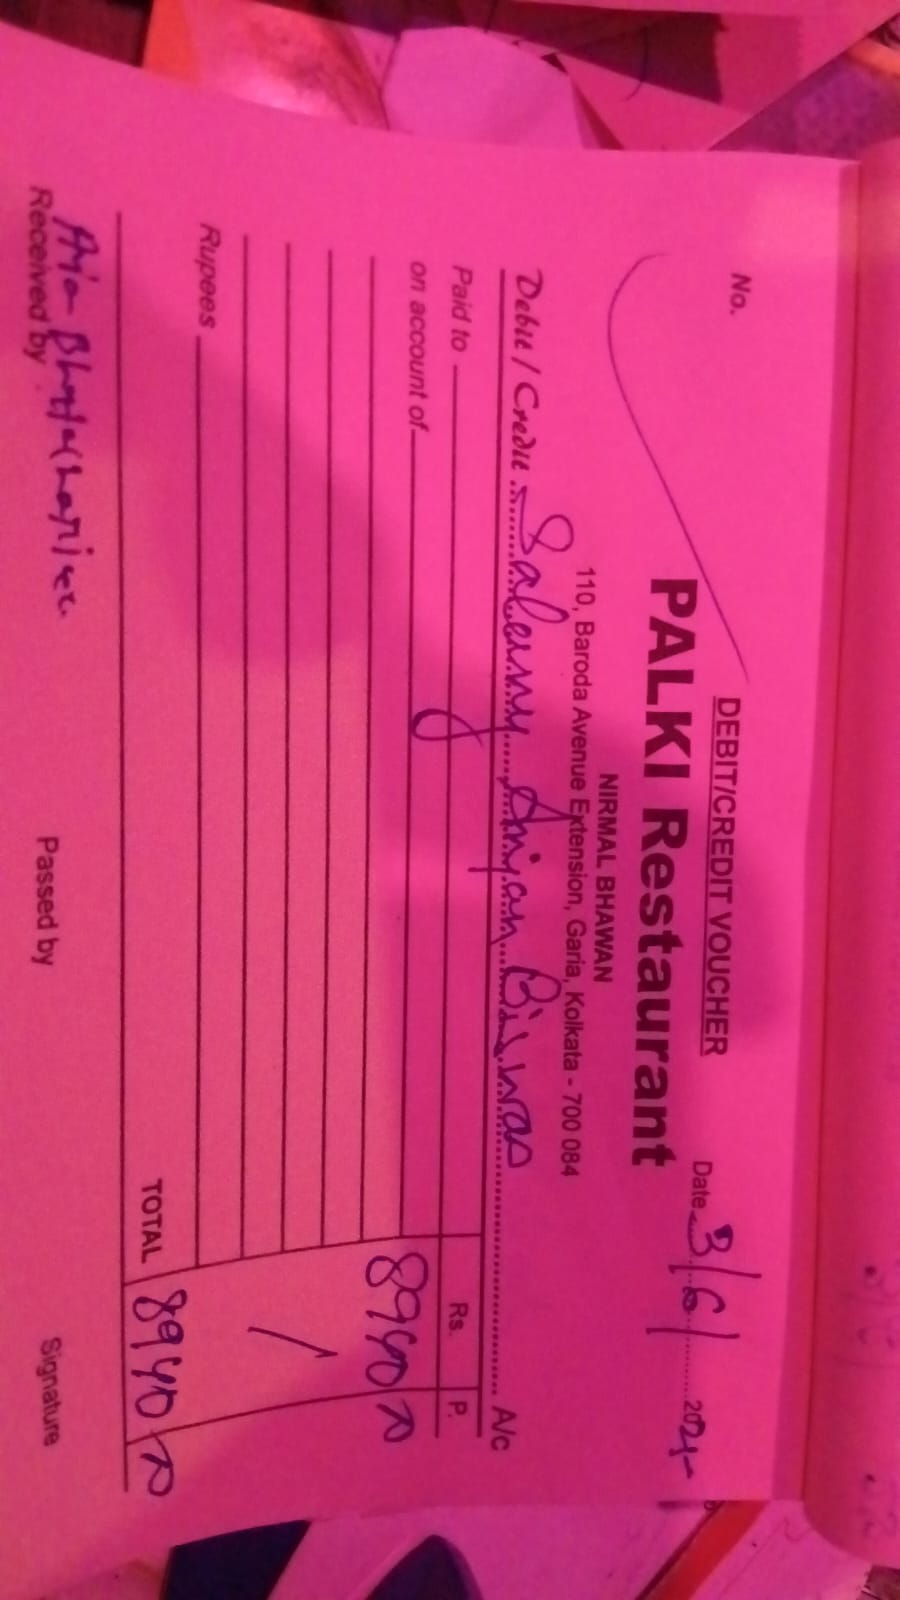 DEBIT/CREDIT VOUCHER
No.
Date 3/6/2024
PALKI Restaurant
NIRMAL BHAWAN
110, Baroda Avenue Extension, Garia, Kolkata - 700 084
Debit / Credit Salary Anjan Biswas A/c
Paid to Rs. P.
on account of 8940
Rupees
TOTAL 8940
Received by Passed by Signature